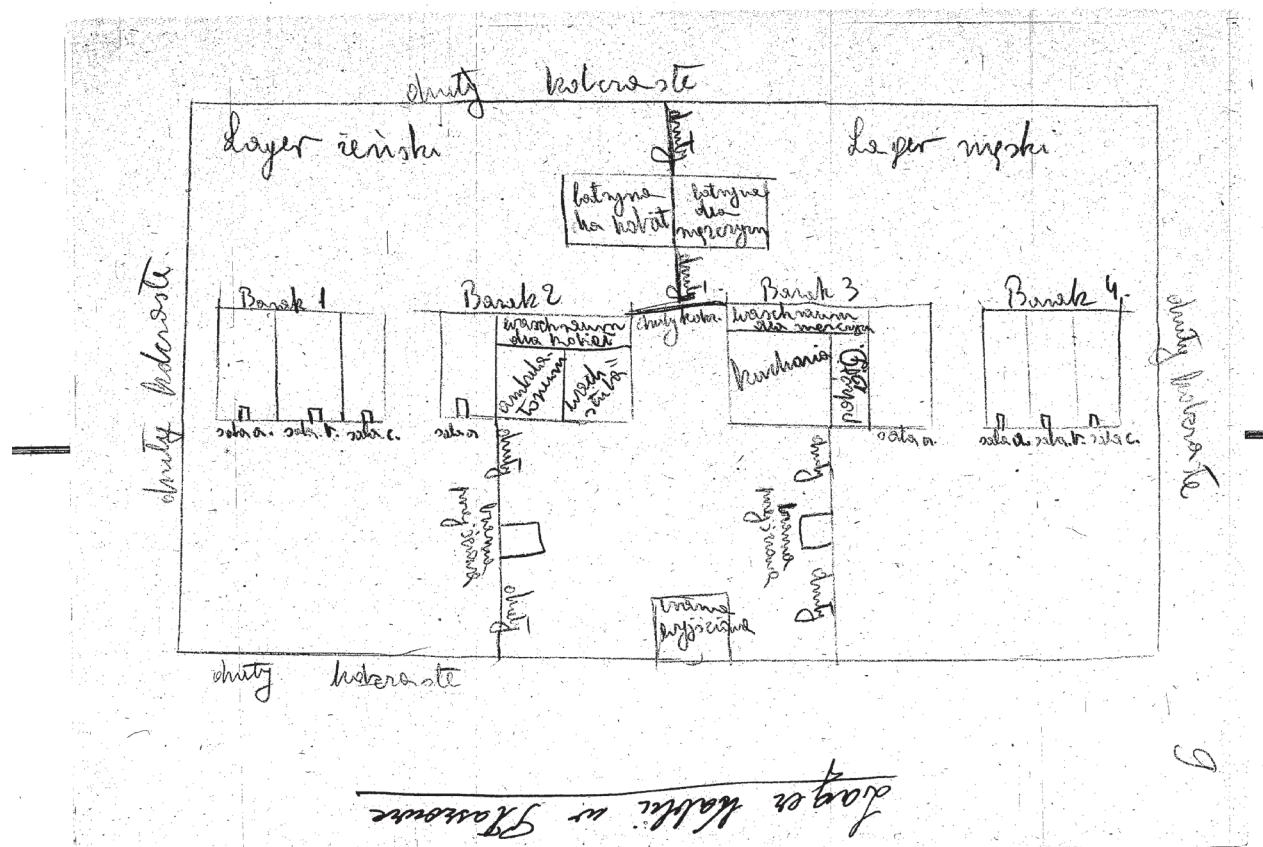 druty kolczaste
Lager żeński
Lager męski
druty
latryna
dla kobiet
latryna
dla
mężczyzn
druty
druty kolczaste
druty kolczaste
Barak 1
Barak 2
Barak 3
Barak 4
druty kolcz.
waschraum
dla kobiet
waschraum
dla mężczyzn
ambula-
torium
kuchnia
sala a.
sala b.
sala c.
sala a
sala a
sala a.
sala b.
sala c.
druty
brama
wyjściowa
druty
druty
brama
wyjściowa
druty
brama
wyjściowa
druty kolczaste
9
Lager Kabli w Płaszowie